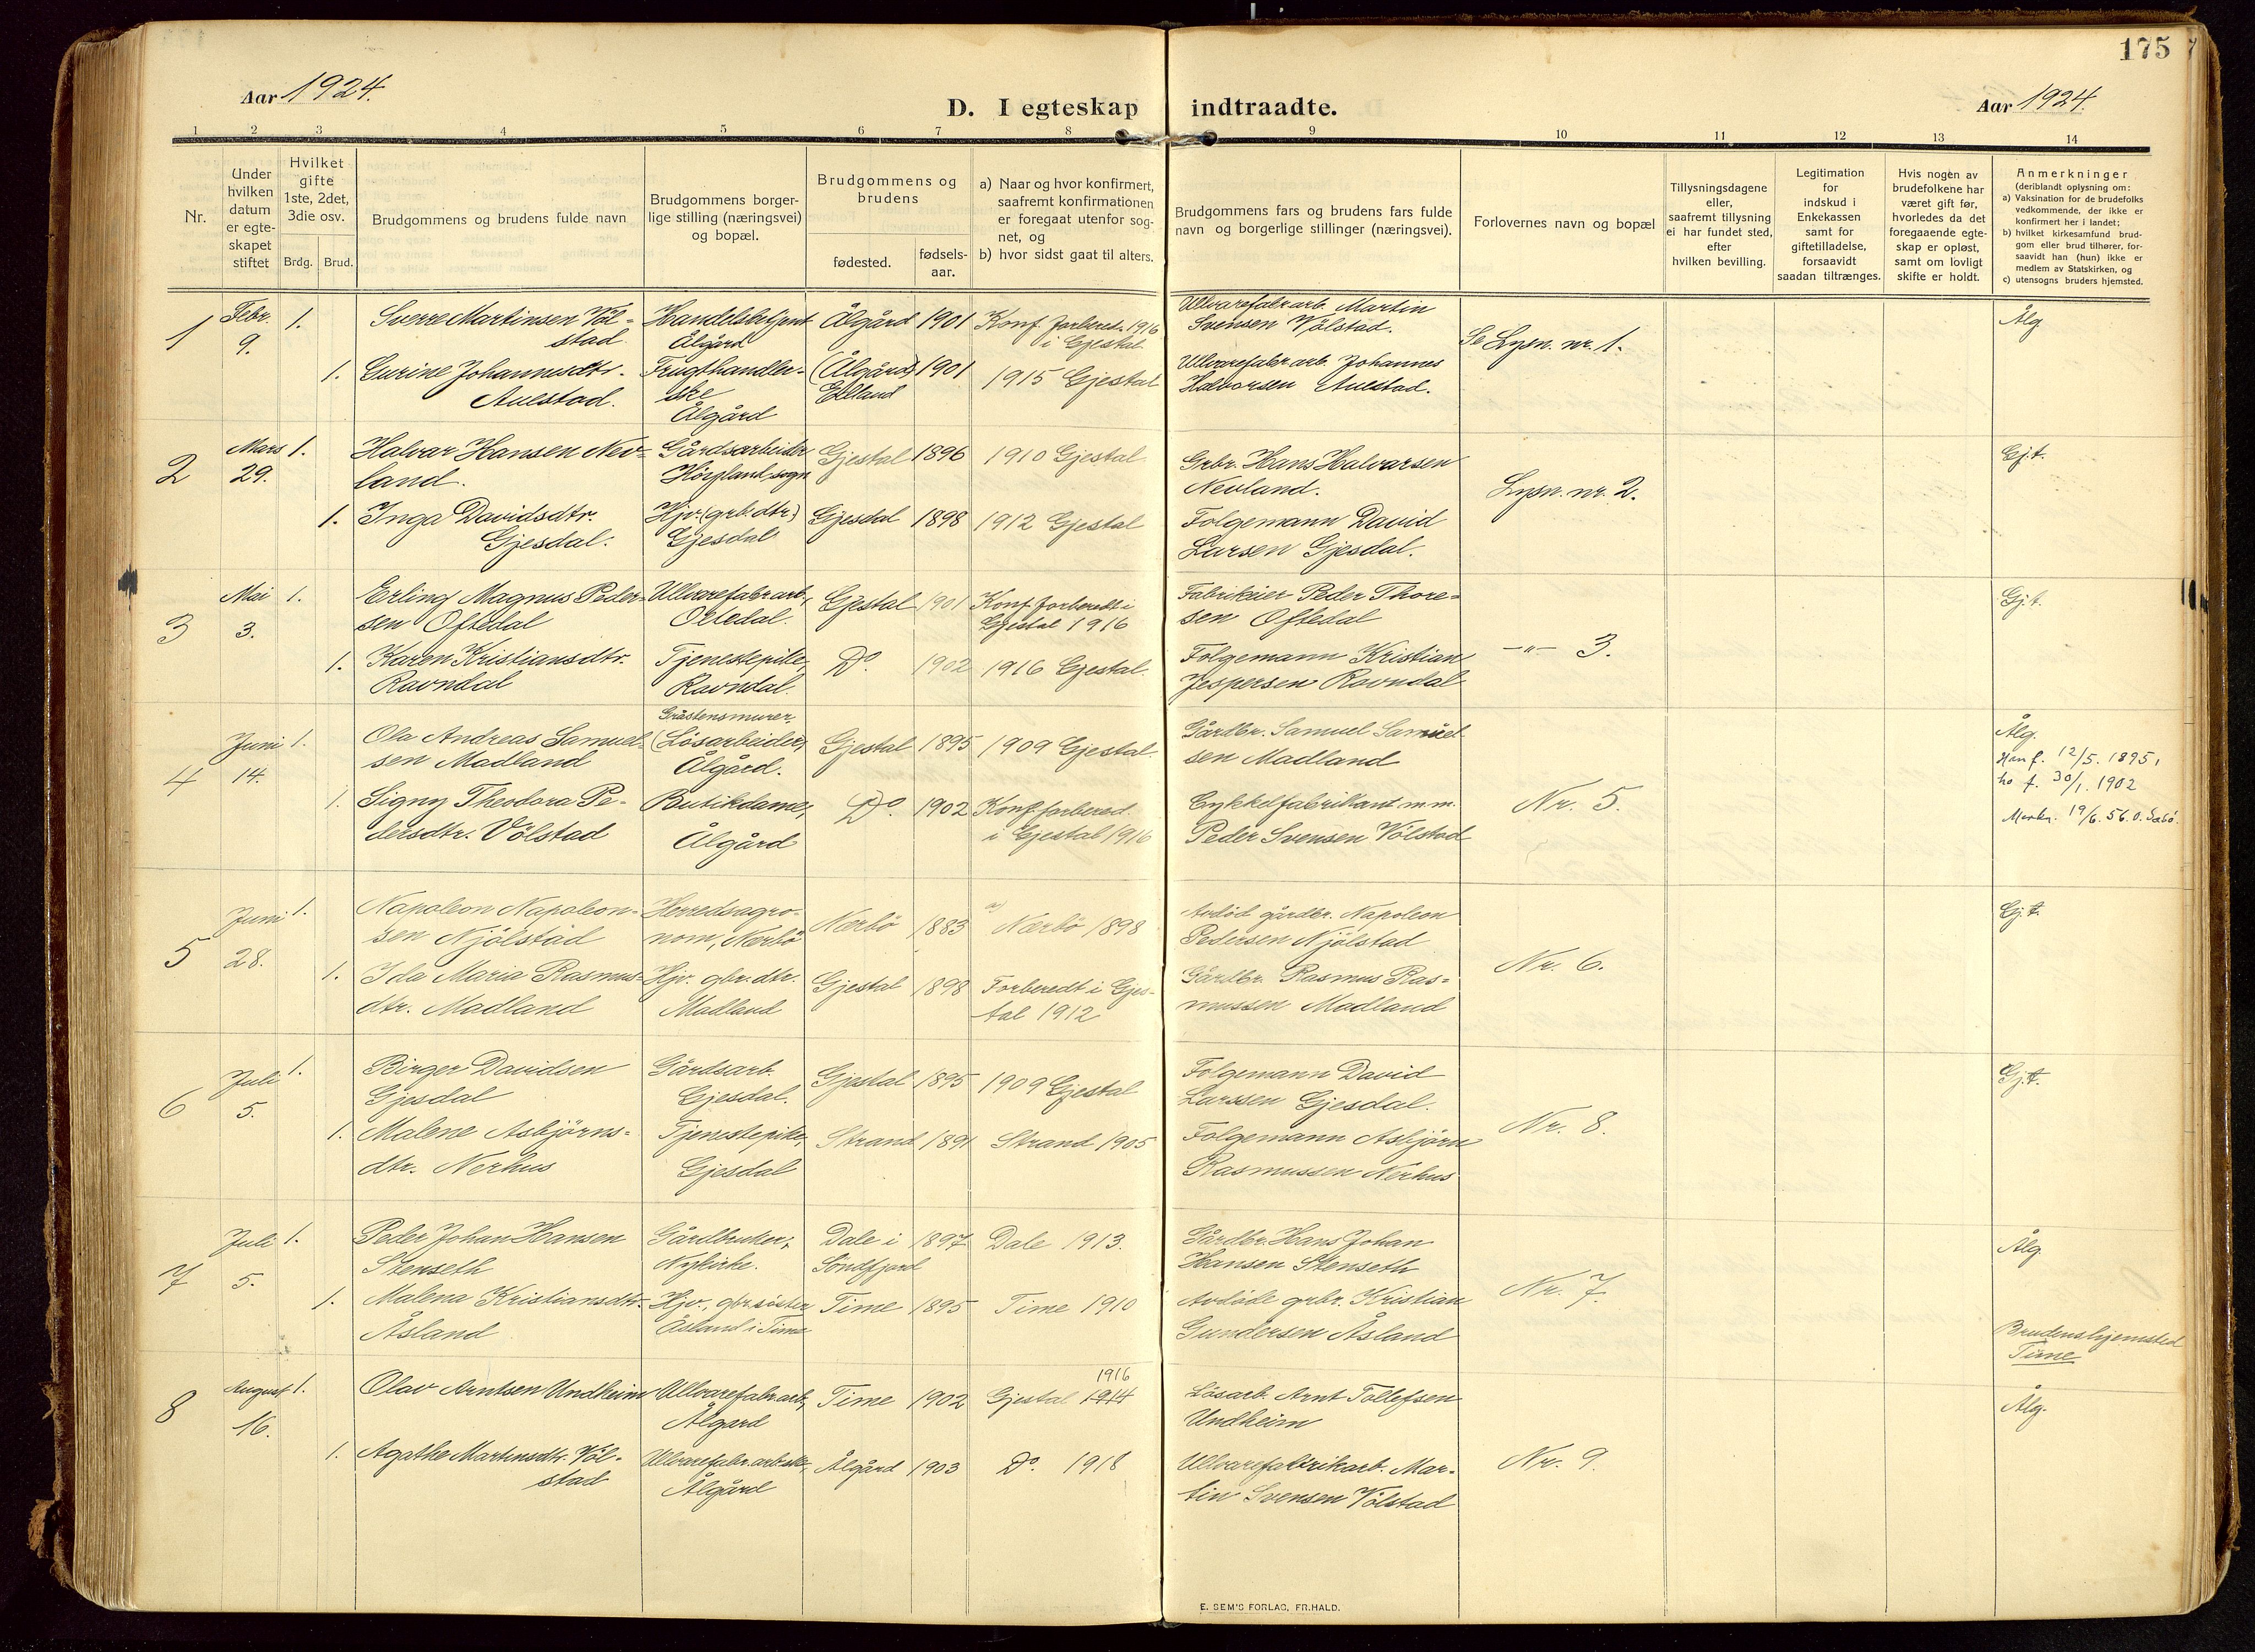 175
Aar 1924.
D. I egteskap indtraadte.
Aar 1924.
1 2 3 4 5 6 7 8 9 10 11 12 13 14
Nr.
Under hvilken datum er egte-skapet stiftet
Hvilket gifte 1ste, 2det, 3die osv.
Brdg. Brud.
Brudgommens og brudens fulde navn
Brudgommens borger-lige stilling (næringsvei) og bopæl.
Brudgommens og brudens
fødested.
fødsels-aar.
a) Naar og hvor konfirmert, saafremt konfirmationen er foregaat utenfor sog-net, og
b) hvor sidst gaat til alters.
Brudgommens fars og brudens fars fulde navn og borgerlige stillinger (næringsvei).
Forlovernes navn og bopæl
Tillysningsdagene eller, saafremt tillysning ei har fundet sted, efter hvilken bevilling.
Legitimation for indskud i Enkekassen samt for giftetilladelse, forsaavidt saadan tiltrænges.
Hvis nogen av brudefolkene har været gift før, hvorledes da det foregaaende egte-skap er opløst, samt om lovligt skifte er holdt.
Anmerkninger (deriblandt oplysning om:
a) Vaksination for de brudefolks vedkommende, der ikke er konfirmert her i landet;
b) hvilket kirkesamfund brud-gom eller brud tilhører, for-saavidt han (hun) ikke er medlem av Statskirken, og
c) utensogns bruders hjemsted.
1 Febr. 9. 1. Sverre Martinsen Völ-
stad
Handelsbetjent
Ålgård
Ålgård 1901 Konf. forbered. 1916
i Gjestal
Ullvarefabrarb. Martin
Svensen Völstad.
Se Lysn. nr. 1.
Ålg.
1. Gurine Johannesdtr.
Auestad.
Frugthandler-
ske
Ålgård
(Ålgård)
Edland
1901 1915 Gjestal
Ullvarefabrarb. Johannes
Halvorsen Auestad.
2 Mars 29. 1. Halvar Hansen Nev-
land.
Gårdsarbeider
Högsland, sogn
Gjestal 1896 1910 Gjestal
Grbr. Hans Halvarsen
Nevland.
Lysn. nr. 2.
Gj.t.
1. Inga Davidsdtr.
Gjesdal.
Hjv. (grb. dtr.)
Gjesdal
Gjesdal 1898 1912 Gjestal
Folgemann David
Larsen Gjesdal.
3 Mai 3. 1. Erling Magnus Peder-
sen Oftedal
Ullvarefabrarb.,
Oltedal.
Gjestal 1901 Konf. forberedt i
Gjestal 1916
Fabrikeier Peder Thore-
sen Oftedal
-"- 3.
Gj.t.
1. Karen Kristiansdtr.
Ravndal
Tjenestepike,
Ravndal.
Do. 1902 1916 Gjestal.
Folgemann Kristian
Jespersen Ravndal
4 Juni 14. 1. Ola Andreas Samuel-
sen Madland
Gråstensmurer,
(Lösarbeider)
Ålgård.
Gjestal 1895 1909 Gjestal.
Gårdbr. Samuel Samuel-
sen Madland
Nr. 5.
Ålg.
Han f. 12/5. 1895,
ho f. 30/1. 1902
Merkn. 19/6. 56. O. Sæbö.
1. Signy Theodora Pe-
dersdtr. Völstad
Butikdame,
Ålgård
Do. 1902 Konf. forbered.
i Gjestal 1916
Cykkelfabrikant m.m.
Peder Svensen Völstad
5 Juni 28. 1. Napoleon Napoleon-
sen Njölstad
Herredsagro-
nom, Nærbö
Nærbö 1883 a) Nærbö 1898
Avdöd gårdbr. Napoleon
Pedersen Njölstad
Nr. 6.
Gj.t.
1. Ida Maria Rasmus-
dtr. Madland
Hjv. gbr. dtr.
Madland
Gjestal 1898 Forberedt i Gjes-
tal 1912
Gårdbr. Rasmus Ras-
mussen Madland
6 Juli 5. 1. Birger Davidsen
Gjesdal
Gårdsarb.
Gjesdal.
Gjestal 1895 1909 Gjestal
Folgemann David
Larssen Gjesdal.
Nr. 8.
Gj.t.
1. Malene Asbjörns-
dtr. Nerhus
Tjenestepike,
Gjesdal
Strand 1891 Strand 1905
Folgemann Asbjörn
Rasmussen Nerhus
7 Juli 5. 1. Peder Johan Hansen
Stenseth
Gårdbruker,
Nykirke.
Dale i
Söndfjord
1897 Dale 1913.
Gårdbr. Hans Johan
Hansen Stenseth
Nr. 7.
Ålg.
1. Malena Kristiansdtr.
Åsland
Hjv., gbr. söster
Åsland i Time
Time 1895 Time 1910
Avdöde grbr. Kristian
Gundersen Åsland
Brudens hjemsted
Time
8 August 16. 1. Olav Arntsen Undheim
Ullvarefabr.arb.,
Ålgård
Time 1902 Gjestal 1914 1916
Lösarb. Arnt Tollefsen
Undheim
Nr. 9.
Ålg.
1. Agathe Martinsdtr. Völ-
stad
Ullvarefabr.arb.ske,
Ålgård
Ålgård 1903 Do. 1918
Ullvarefabrikarb. Mar-
tin Svensen Völstad
E. SEM'S FORLAG, FR.HALD.